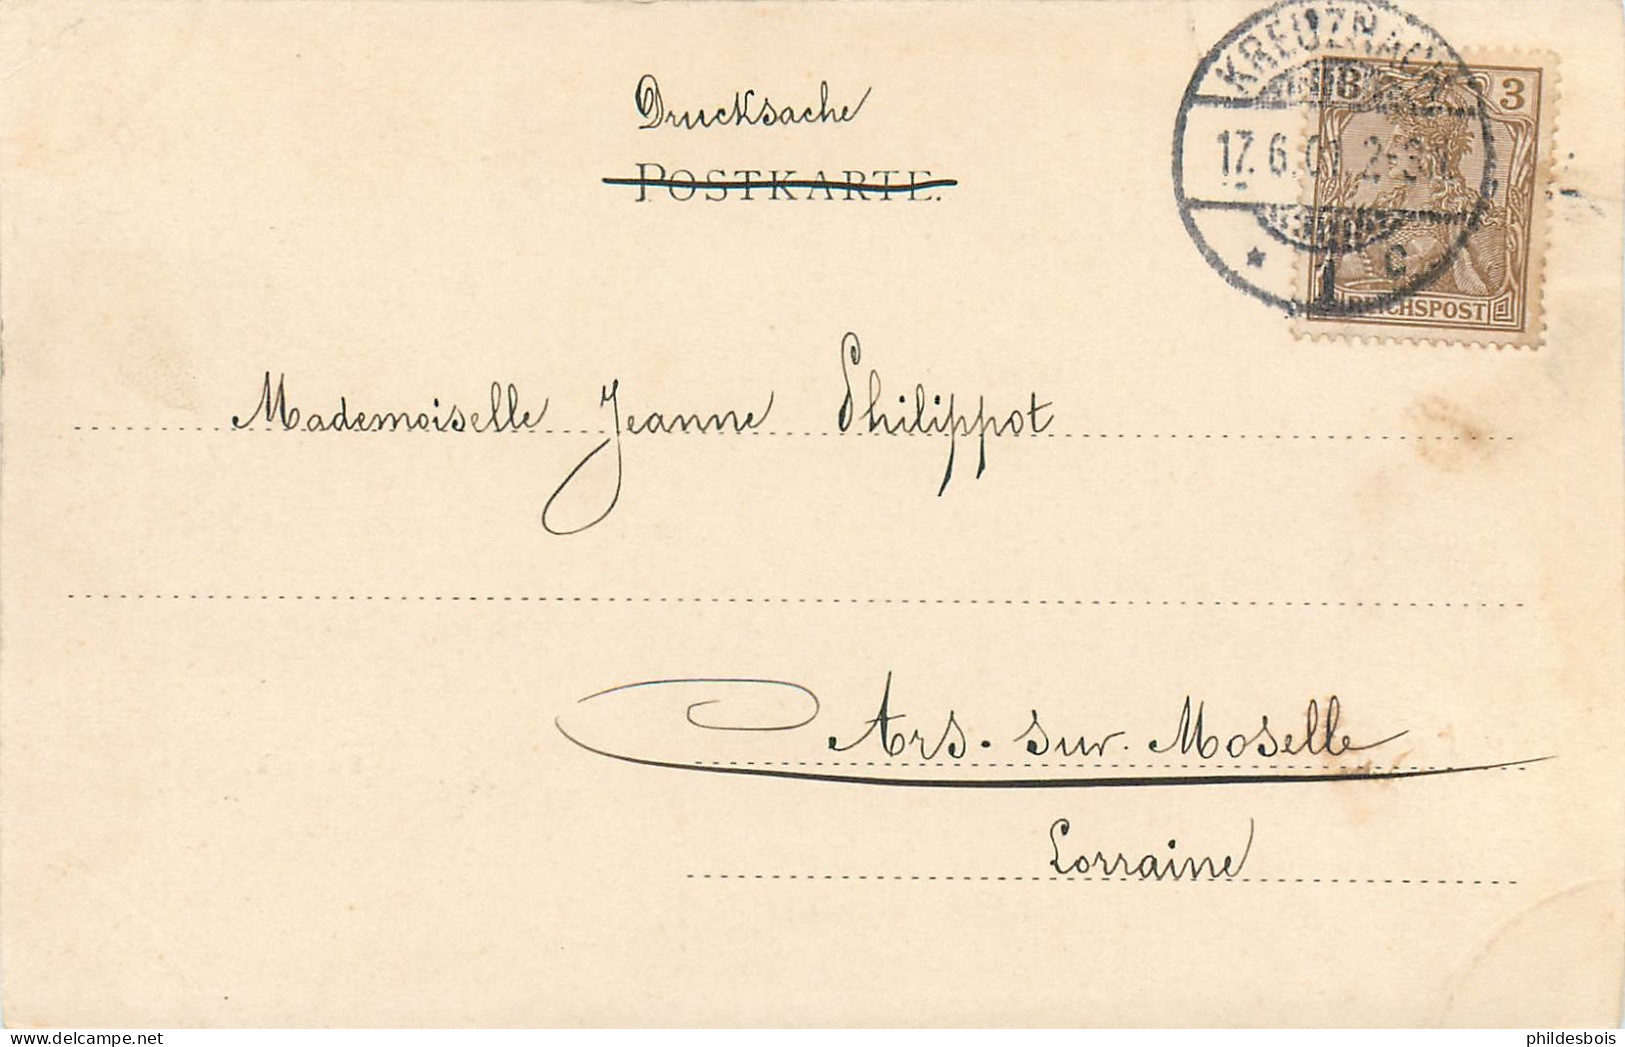 Drucksache
POSTKARTE.
KREUZNACH
17.6.01. 2-3N
* 1 c.
3 3
REICHSPOST
Mademoiselle Jeanne Philippot
Ars-sur-Moselle
Lorraine
phildesbois